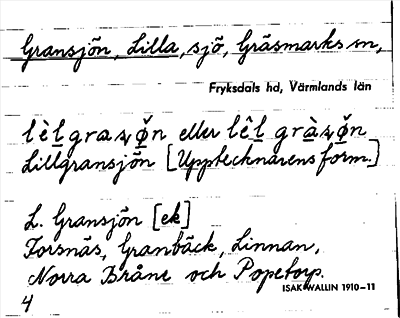 Gransjön, Lilla, sjö, Gräsmarks sn,
Fryksdals hd, Värmlands län
eller
Lillgransjön [Upptecknarens form.]
L. Gransjön [ek]
Torsnäs, Granbäck, Linnan,
Norra Bråne och Popetorp.
ISAK WALLIN 1910–11
4